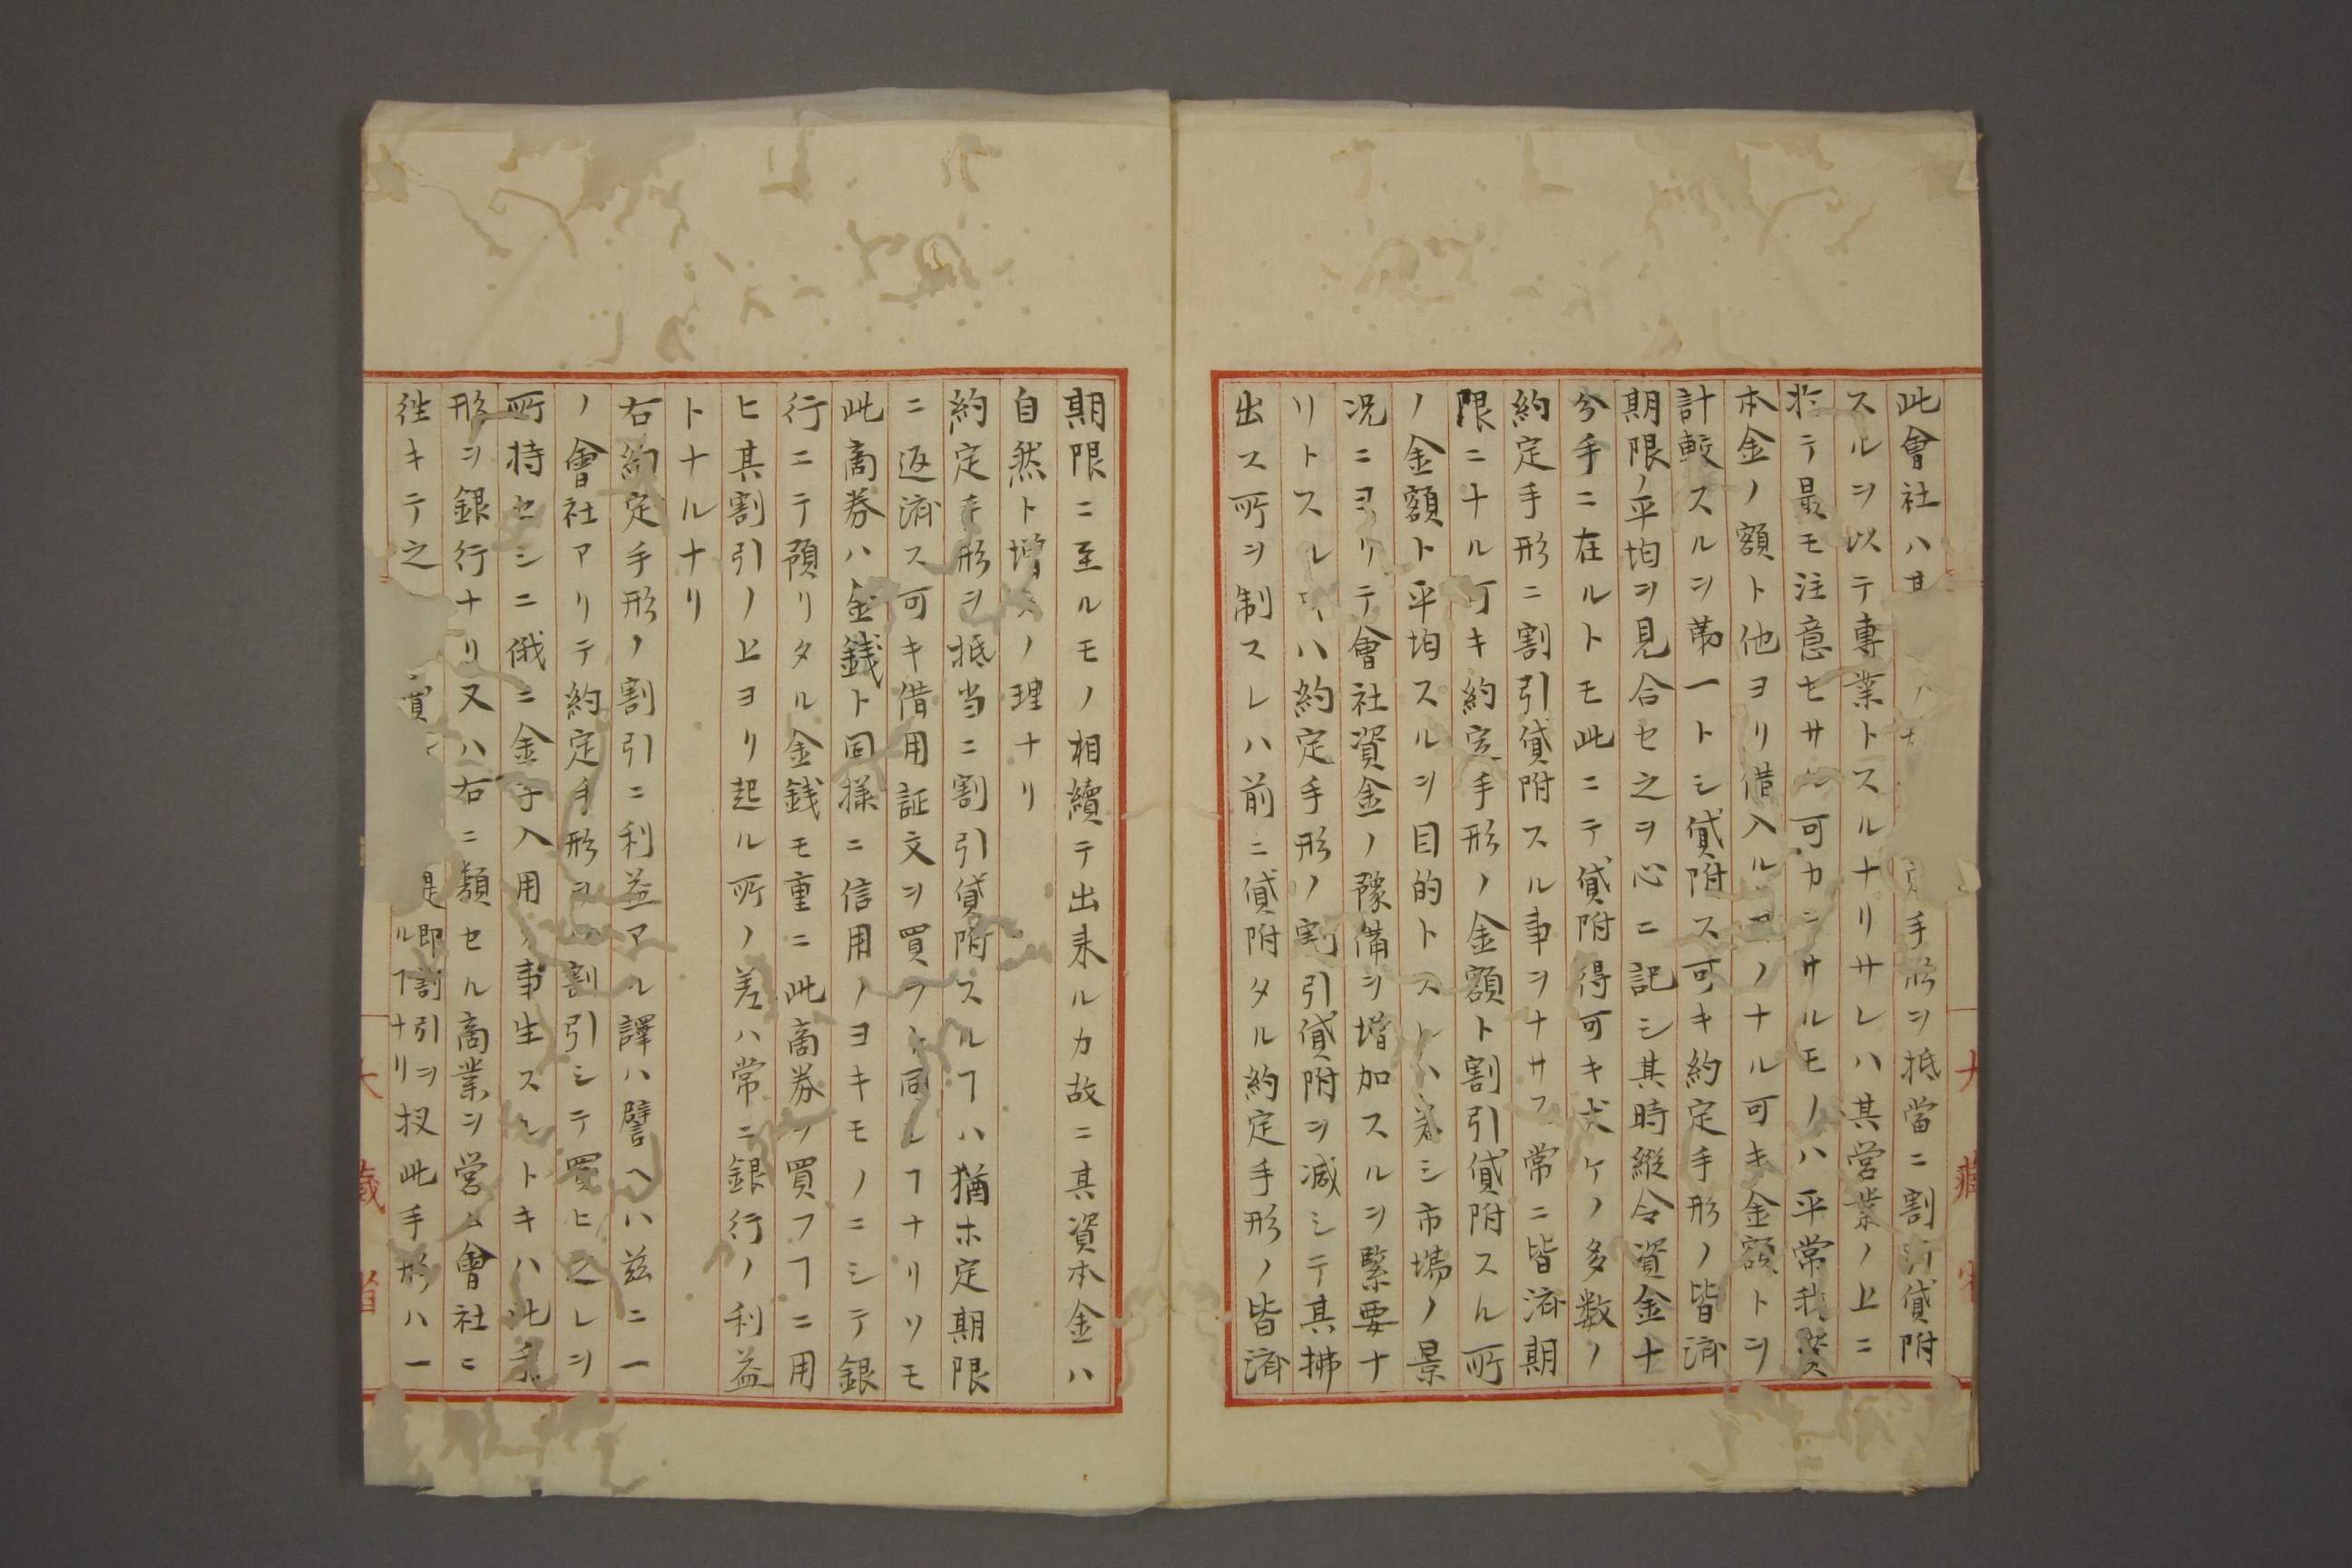 此會社ハ其 手形ヲ抵當ニ割引貸附
スルヲ以テ專業トスルナリサレハ其営業ノ上ニ
於テ最モ注意セサル可カラサルモノハ平常我
本金ノ額ト他ヨリ借入ルヿノナル可キ金額トヲ
計較スルヲ第一トシ貸附ス可キ約定手形ノ皆済
期限ノ平均ヲ見合セ之ヲ心ニ記シ其時縦令資金十
分手ニ在ルトモ此ニテ貸附得可キ丈ケノ多数ノ
約定手形ニ割引貸附スル事ヲナサス常ニ皆済期
限ニナル可キ約定手形ノ金額ト割引貸附スル所
ノ金額ト平均スルヲ目的トス 若シ市場ノ景
況ニヨリテ會社資金ノ豫備ヲ増加スルヲ緊要ナ
リトスル ハ約定手形ノ割引貸附ヲ減シテ其拂
出ス所ヲ制スレハ前ニ貸附タル約定手形ノ皆済
期限ニ至ルモノ相續テ出来ルカ故ニ其資本金ハ
自然ト増スノ理ナリ
約定手形ヲ抵当ニ割引貸附スルヿハ猶ホ定期限
ニ返済ス可キ借用証文ヲ買フト同シヿナリソモ
此商券ハ金銭ト同様ニ信用ノヨキモノニシテ銀
行ニテ預リタル金銭モ重ニ此商券ヲ買フヿニ用
ヒ其割引ノ上ヨリ起ル所ノ差ハ常ニ銀行ノ利益
トナルナリ
右約定手形ノ割引ニ利益アル譯ハ譬ヘハ茲ニ一
ノ會社アリテ約定手形ヲ 割引シテ買ヒ之レヲ
所持セシニ俄ニ金子入用ノ事生スルトキハ此手
形ヲ銀行ナリ又ハ右ニ類セル商業ヲ営ム會社ニ
往キテ之 買 是即割引ヲ
ルヿナリ扨此手形ハ一
大藏省